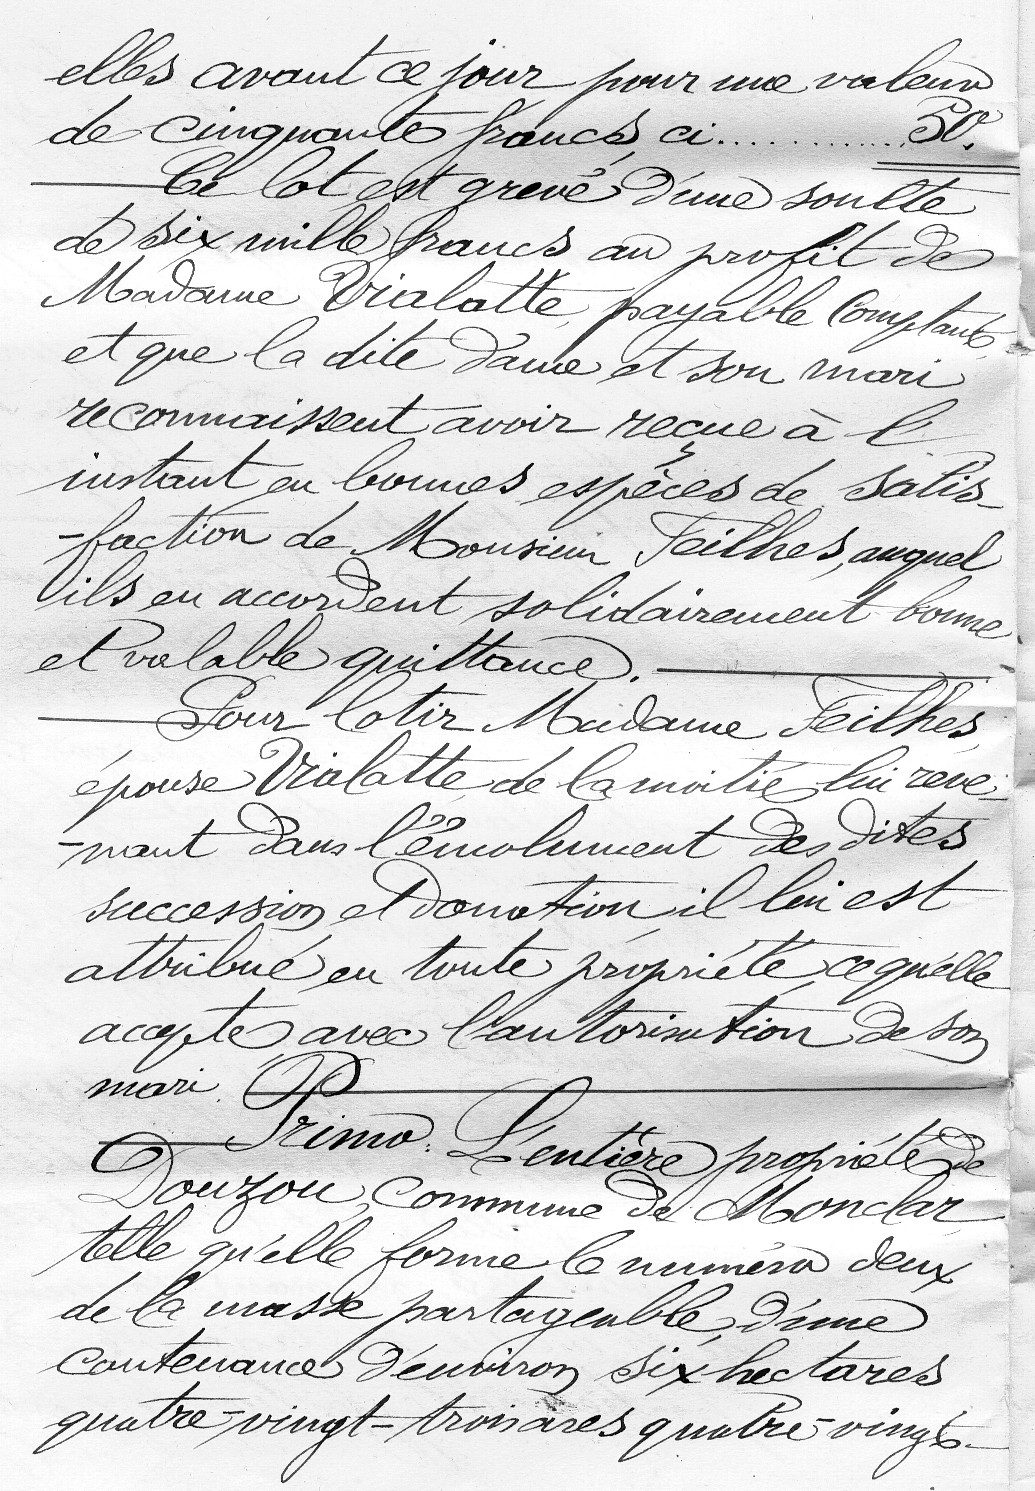 elles avant ce jour pour une valeur
de cinquante francs, ci............. 50f.
Ce lot est grevé d'une soulte
de six mille francs au profit de
Madame Vialatte, payable comptant,
et que la dite dame et son mari
reconnaissent avoir reçue à l'
instant en bonnes espèces de satis-
-faction de Monsieur Feilhes, auquel
ils en accordent solidairement bonne
et valable quittance.
Pour lotir Madame Feilhes,
épouse Vialatte, de la moitié lui reve-
-nant dans l'émolument des dites
succession et donation, il lui est
attribué en toute propriété, ce qu'elle
accepte avec l'autorisation de son
mari.
Primo: L'entière propriété de
Douzou, commune de Monclar
telle qu'elle forme le numéro deux
de la masse partageable, d'une
contenance d'environ six hectares
quatre-vingt-trois ares quatre-vingt-